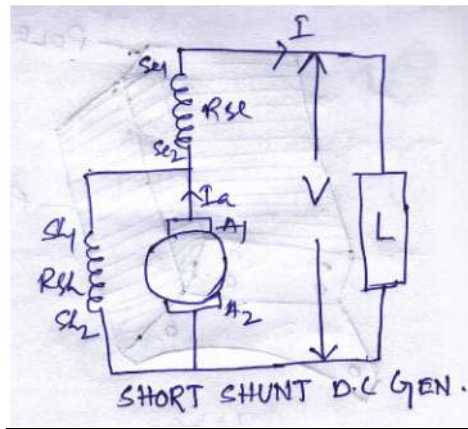 I
Se1
Rse
Se2
Ia
V
A1
L
Sh1
Rsh
Sh2
A2
SHORT SHUNT D.C GEN.